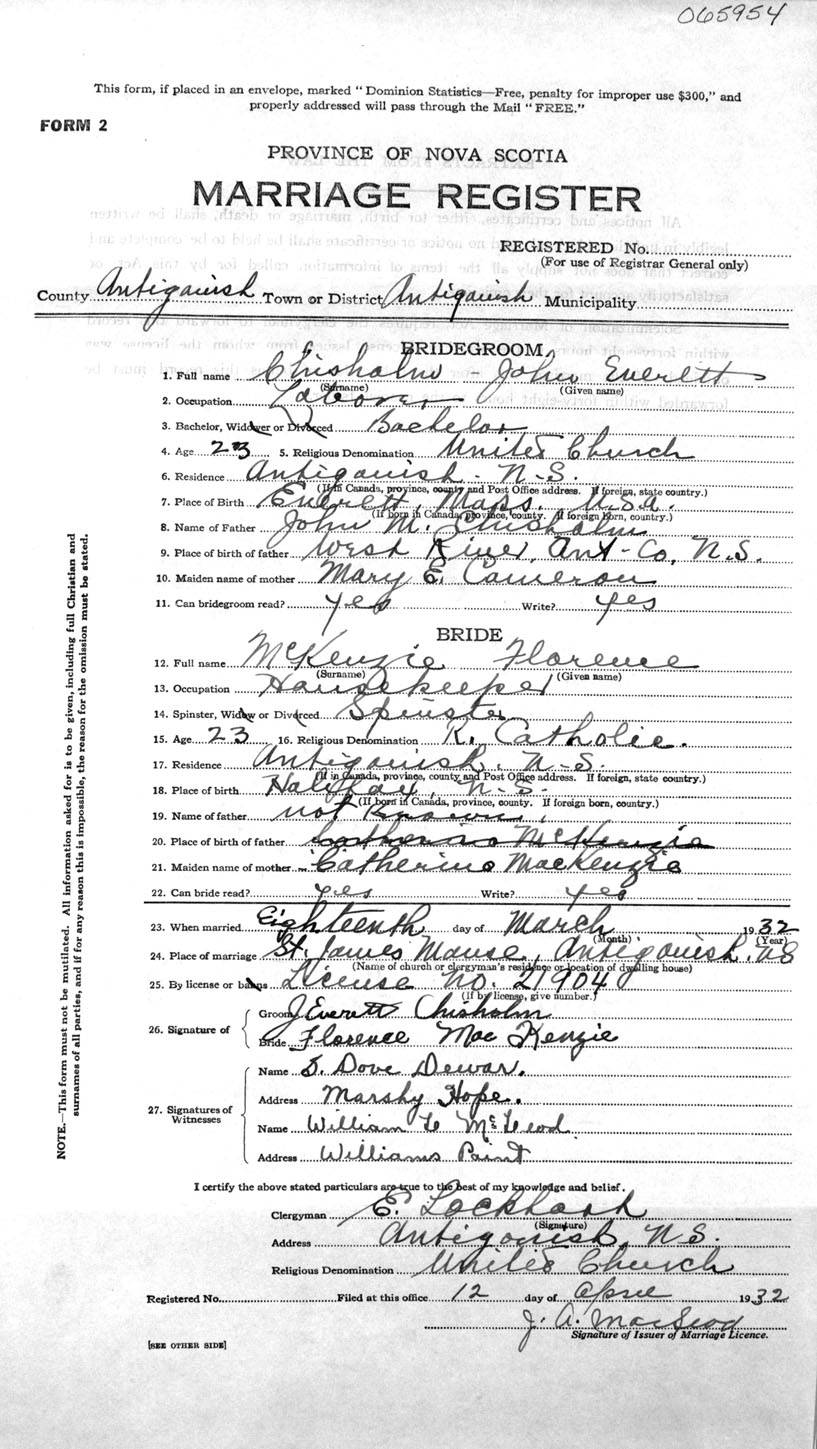 065954
This form, if placed in an envelope, marked "Dominion Statistics—Free, penalty for improper use $300," and
properly addressed will pass through the Mail "FREE."
FORM 2
PROVINCE OF NOVA SCOTIA
MARRIAGE REGISTER
REGISTERED No.
(For use of Registrar General only)
County Antigonish Town or District Antigonish Municipality
BRIDEGROOM
1. Full name Chisholm - John Everett
(Surname) (Given name)
2. Occupation Laborer
3. Bachelor, Widower or Divorced Bachelor
4. Age 23 5. Religious Denomination United Church
6. Residence Antigonish - N.S.
(If in Canada, province, county and Post Office address. If foreign, state country.)
7. Place of Birth Everett, Mass. U.S.A.
(If born in Canada, province, county. If foreign born, country.)
8. Name of Father John M. Chisholm
9. Place of birth of father West River, Ant-Co, N.S.
10. Maiden name of mother Mary E. Cameron
11. Can bridegroom read? yes Write? yes
BRIDE
12. Full name McKenzie Florence
(Surname) (Given name)
13. Occupation Housekeeper
14. Spinster, Widow or Divorced Spinster
15. Age 23 16. Religious Denomination R. Catholic.
17. Residence Antigonish. N-S.
(If in Canada, province, county and Post Office address. If foreign, state country.)
18. Place of birth Halifax, N-S.
(If born in Canada, province, county. If foreign born, country.)
19. Name of father not known
20. Place of birth of father Catherine McKenzie
21. Maiden name of mother Catherine MacKenzie
22. Can bride read? yes Write? yes
23. When married Eighteenth day of March 1932
(Month) (Year)
24. Place of marriage St. James Manse, Antigonish. N S
(Name of church or clergyman's residence or location of dwelling house)
25. By license or banns License No. 21904
(If by license, give number.)
26. Signature of
Groom J Everett Chisholm
Bride Florence MacKenzie
27. Signatures of Witnesses
Name S. Dove Dewar.
Address Marshy Hope.
Name William McLeod
Address Williams Point
I certify the above stated particulars are true to the best of my knowledge and belief.
Clergyman E. Lockhart
(Signature)
Address Antigonish, N.S.
Religious Denomination United Church
Registered No. Filed at this office 12 day of April 1932
J. A. MacLeod
Signature of Issuer of Marriage Licence.
[SEE OTHER SIDE]
NOTE.—This form must not be mutilated. All information asked for is to be given, including full Christian and
surnames of all parties, and if for any reason this is impossible, the reason for the omission must be stated.